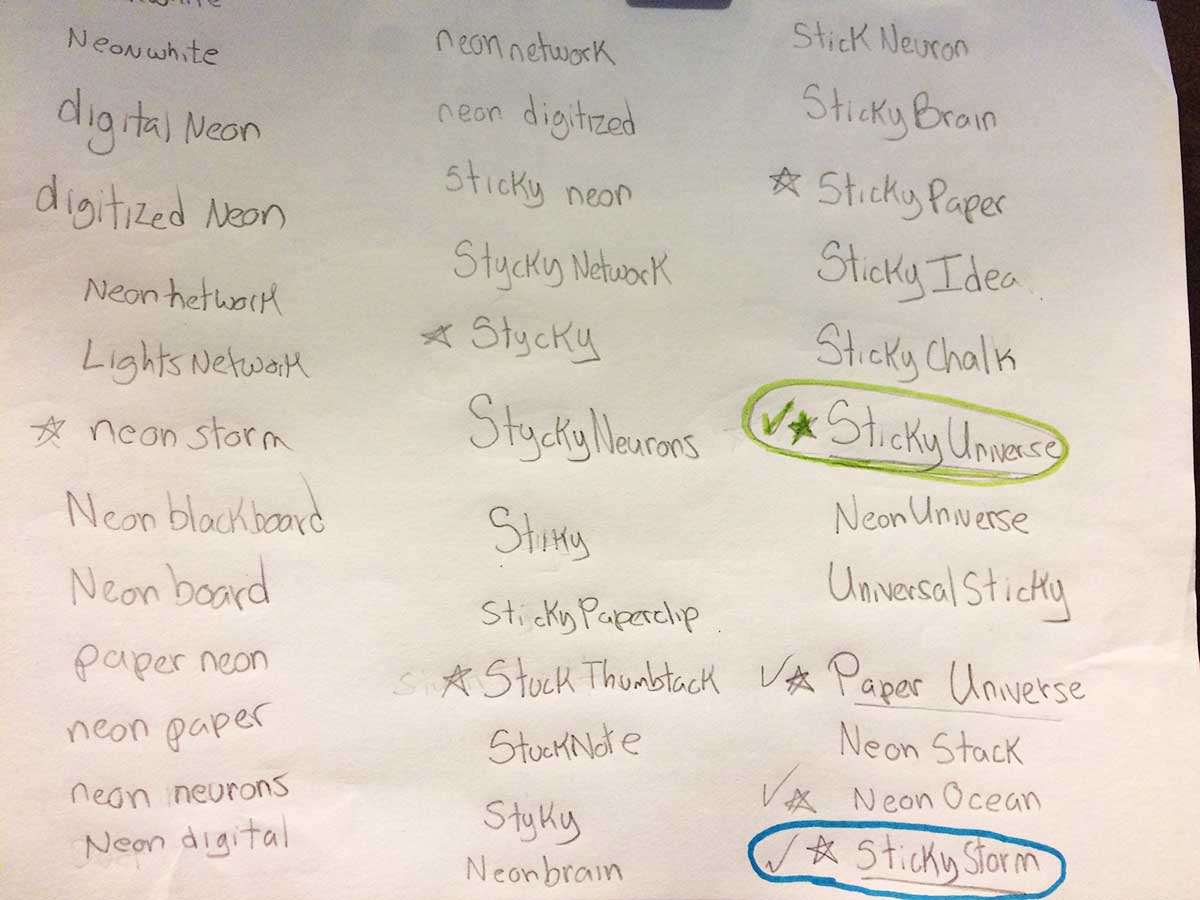 Neonwhite
digital Neon
digitized Neon
Neonnetwork
LightsNetwork
neon storm
Neon blackboard
Neon board
paper neon
neon paper
neon neurons
Neon digital
neonnetwork
neon digitized
sticky neon
Stycky Network
Stycky
StyckyNeurons
Stikky
StickyPaperclip
Stuck Thumbtack
StuckNote
Styky
Neonbrain
Stick Neuron
StickyBrain
StickyPaper
StickyIdea
StickyChalk
StickyUniverse
NeonUniverse
UniversalSticky
Paper Universe
Neon Stack
Neon Ocean
StickyStorm